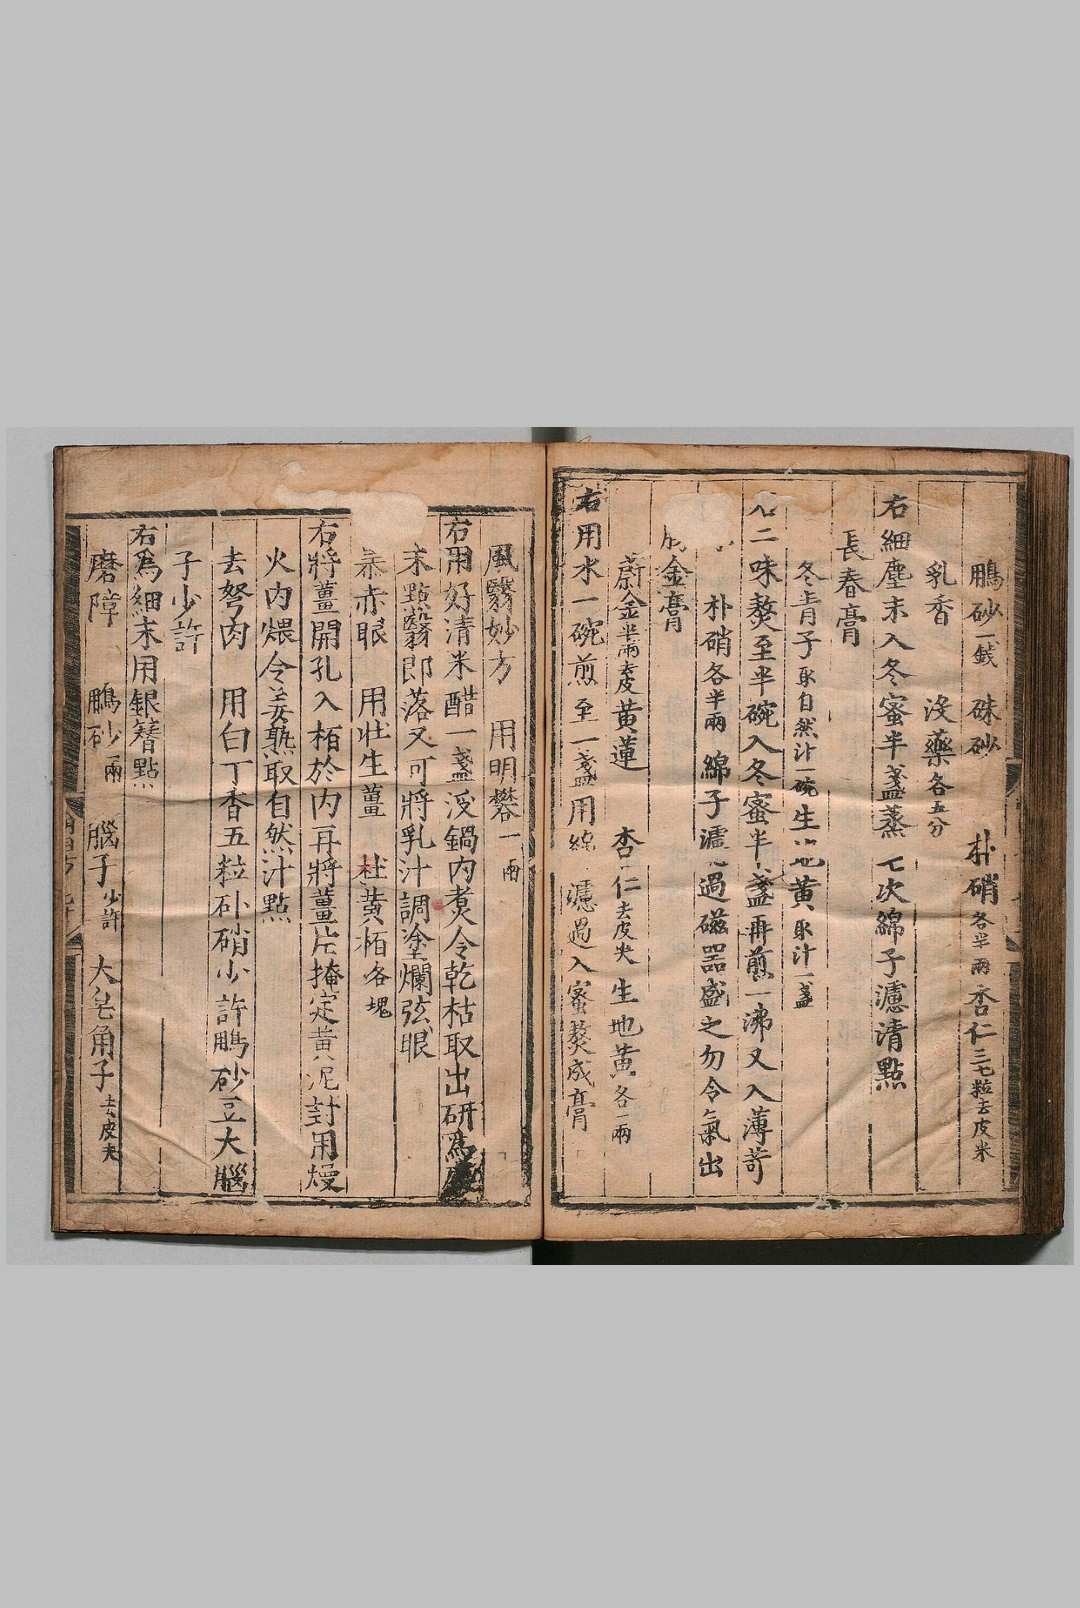 鵬砂一錢 硃砂 朴硝各半兩 杏仁三七粒去皮米
乳香 沒藥各五分
右細塵末入冬蜜半盞蒸七次綿子濾清點
長春膏
冬青子取自然汁一碗生地黃取汁一盞
右二味熬至半碗入冬蜜半盞再煎一沸又入薄苛
朴硝各半兩 綿子濾過磁器盛之勿令氣出
金膏
蔚金半兩去皮黃蓮 杏仁去皮尖 生地黃各一兩
右用水一碗煎至一盞用綿濾過入蜜熬成膏
風翳妙方 用明礬一兩
右用好清米醋一盞浸鍋內煑令乾枯取出研爲
末點翳即落又可將乳汁調塗爛弦眼
暴赤眼 用壮生薑 杜黃栢各塊
右將薑開孔入栢於内再將薑片掩定黃泥封用熳
火内煨令姜熟取自然汁點
去努肉 用白丁香五粒朴硝少許鵬砂豆大腦
子少許
右爲細末用銀簪點
磨障 鵬砂一兩 腦子少許 大皂角子去皮夫